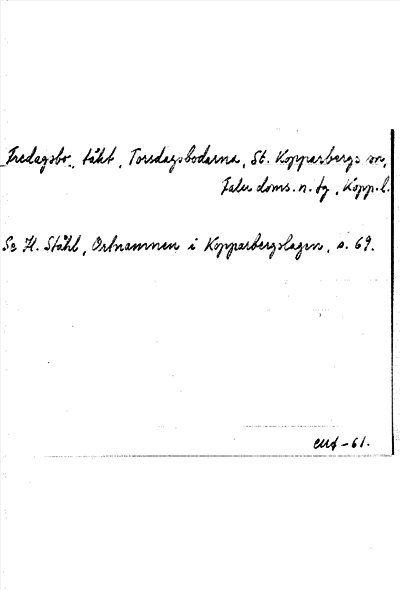 Fredagsbo, täkt, Torsdagsbodarna, St. Kopparbergs sn,
Falu doms. n. tg, Kopp. l.
Se H. Ståhl, Ortnamnen i Kopparbergslagen, s. 69.
-61.